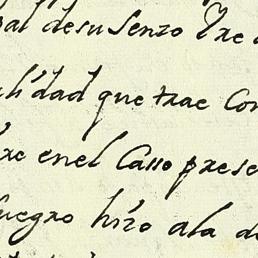 al de su Senzo
lidad que trae Con
re en el Casso prese
uegro hizo a la d